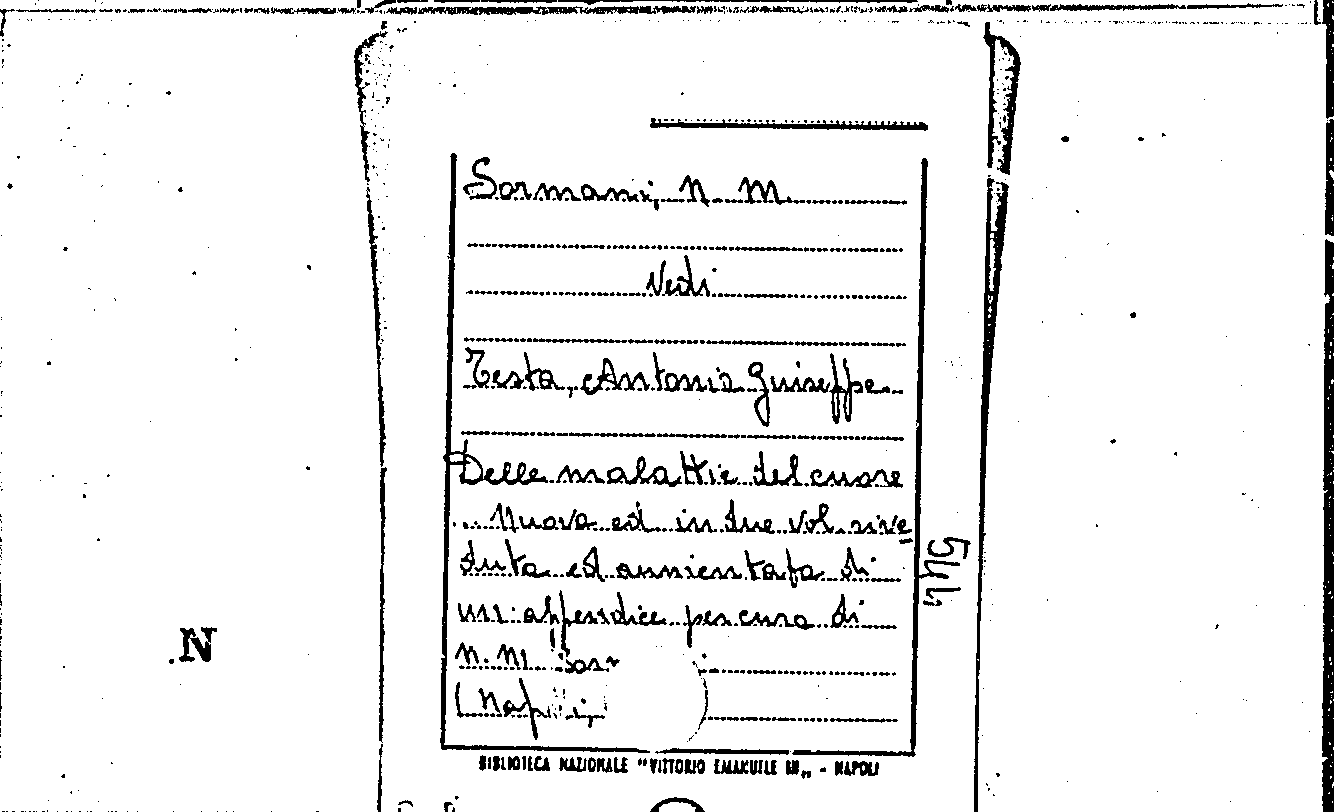 Sormani, N. M.
Vedi
Testa, Antonio Guiseppe
Delle malattie del cuore
... Nuova ed in due vol. rive
duta ed aumentata di
un appendice per cura di
N. M. Sor
(Napoli,
544
N
BIBLIOTECA NAZIONALE "VITTORIO EMANUELE III„ - NAPOLI